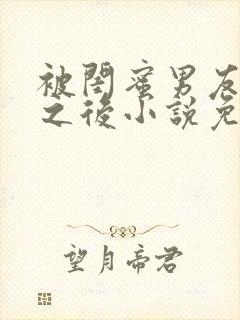 被閨蜜男友
之後小說免
望月帝君